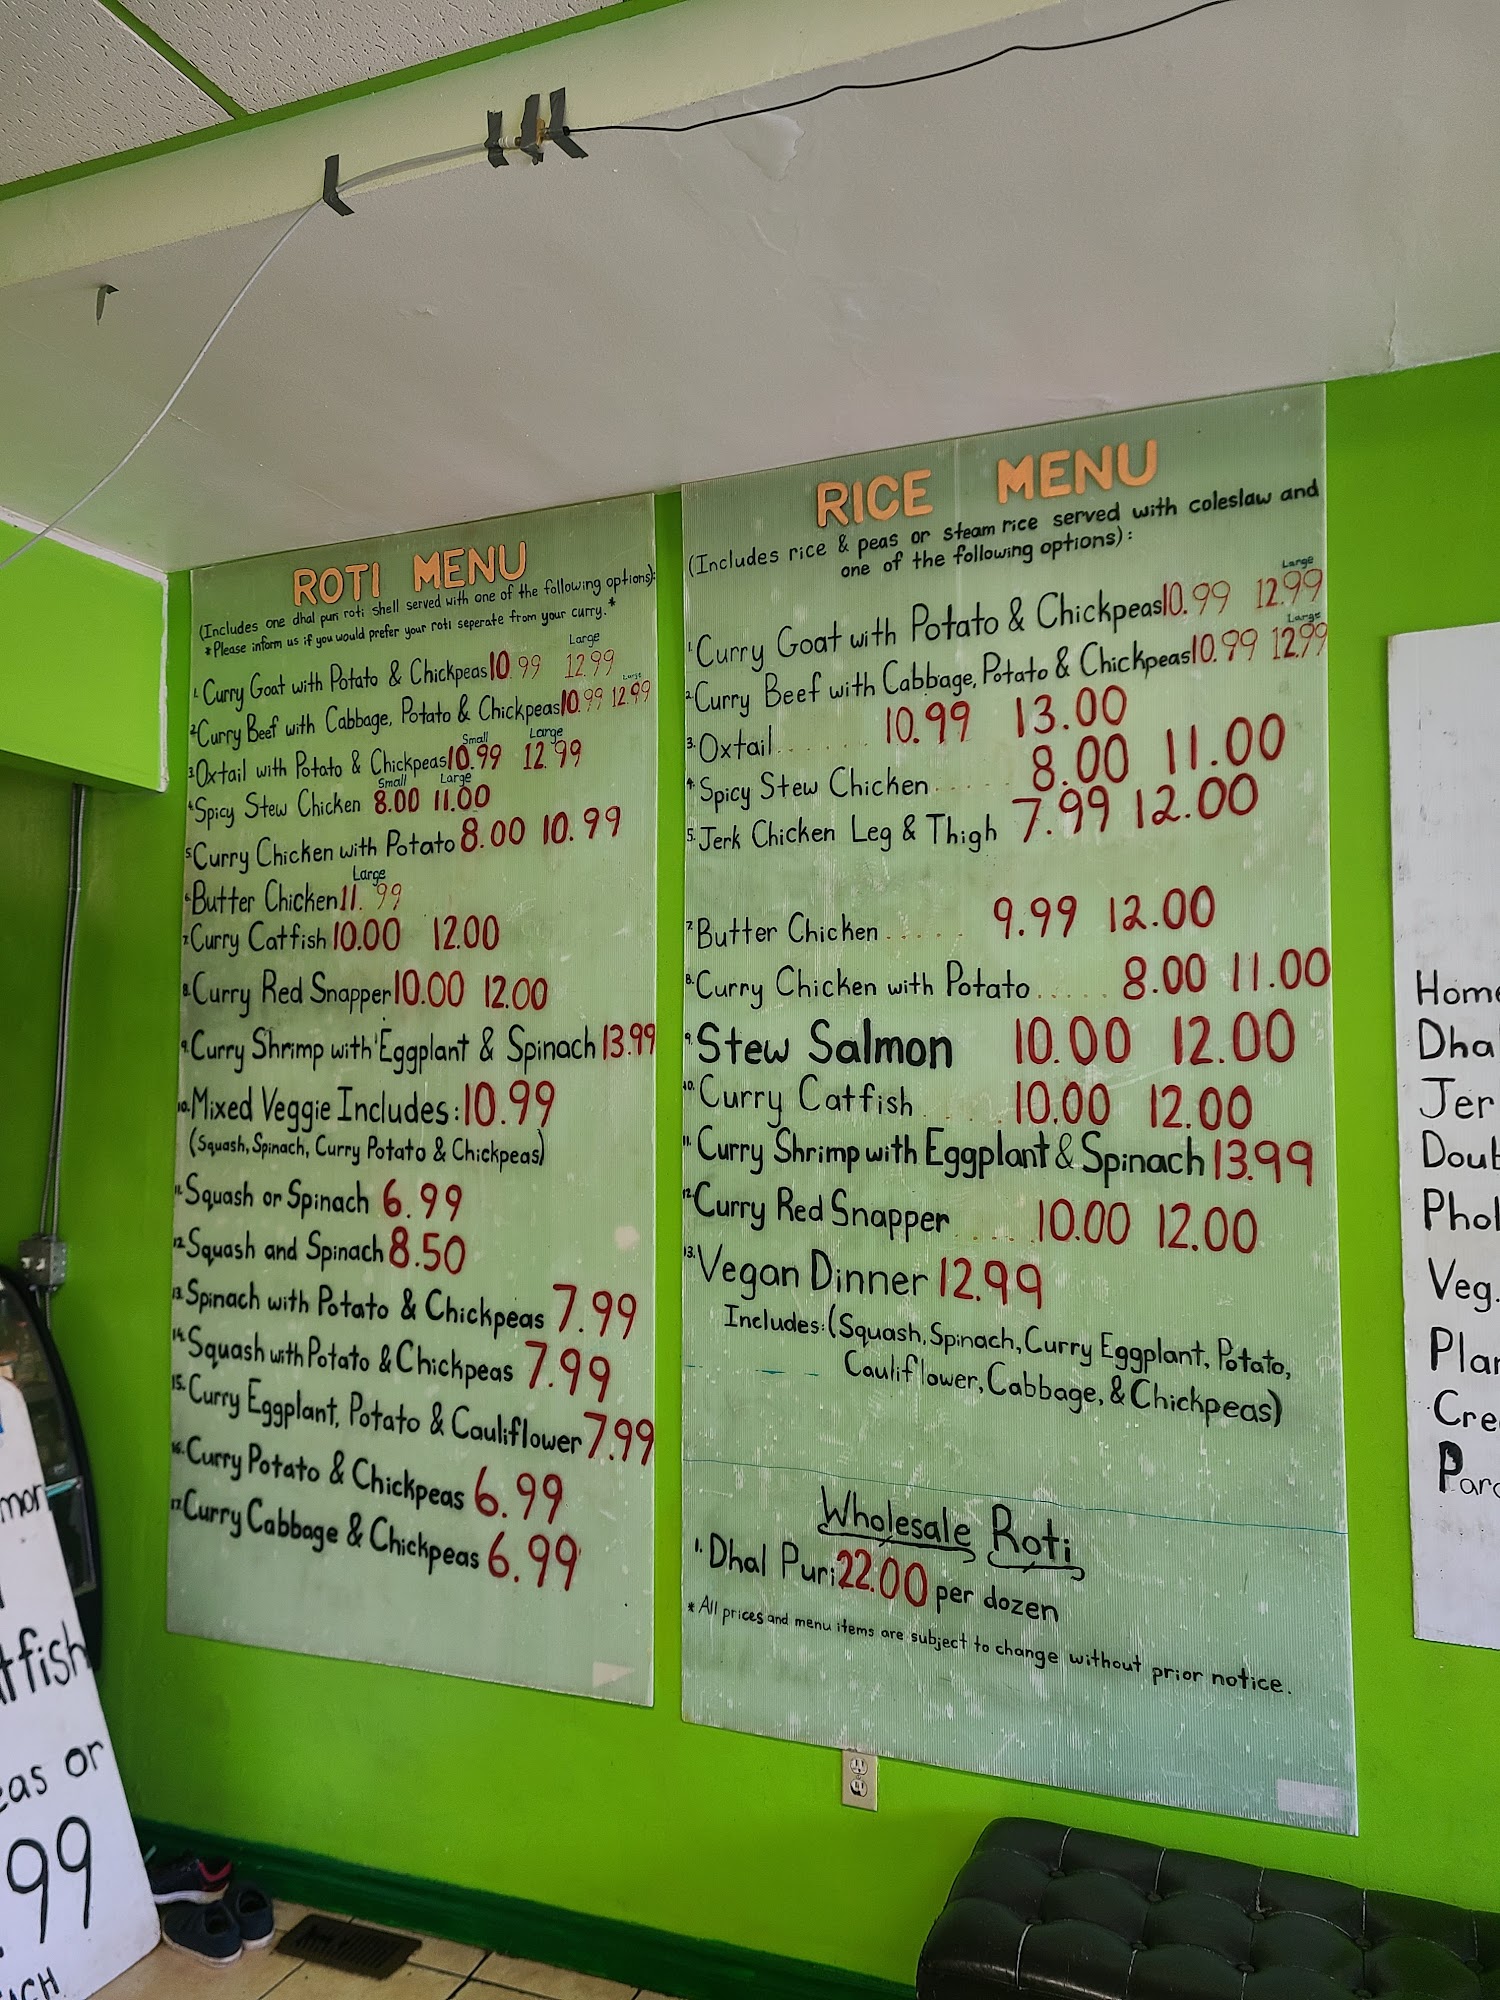 ROTI MENU
(Includes one dhal puri roti shell served with one of the following options):
*Please inform us if you would prefer your roti seperate from your curry.*
Large
1. Curry Goat with Potato & Chickpeas 10.99 12.99
Large
2. Curry Beef with Cabbage, Potato & Chickpeas 10.99 12.99
Small Large
3. Oxtail with Potato & Chickpeas 10.99 12.99
Small Large
4. Spicy Stew Chicken 8.00 11.00
5. Curry Chicken with Potato 8.00 10.99
Large
6. Butter Chicken 11.99
7. Curry Catfish 10.00 12.00
8. Curry Red Snapper 10.00 12.00
9. Curry Shrimp with Eggplant & Spinach 13.99
10. Mixed Veggie Includes: 10.99
(Squash, Spinach, Curry Potato & Chickpeas)
11. Squash or Spinach 6.99
12. Squash and Spinach 8.50
13. Spinach with Potato & Chickpeas 7.99
14. Squash with Potato & Chickpeas 7.99
15. Curry Eggplant, Potato & Cauliflower 7.99
16. Curry Potato & Chickpeas 6.99
17. Curry Cabbage & Chickpeas 6.99
RICE MENU
(Includes rice & peas or steam rice served with coleslaw and
one of the following options):
Large
1. Curry Goat with Potato & Chickpeas 10.99 12.99
Large
2. Curry Beef with Cabbage, Potato & Chickpeas 10.99 12.99
3. Oxtail....... 10.99 13.00
4. Spicy Stew Chicken..... 8.00 11.00
5. Jerk Chicken Leg & Thigh 7.99 12.00
7. Butter Chicken..... 9.99 12.00
8. Curry Chicken with Potato..... 8.00 11.00
9. Stew Salmon 10.00 12.00
10. Curry Catfish.... 10.00 12.00
11. Curry Shrimp with Eggplant & Spinach 13.99
12. Curry Red Snapper..... 10.00 12.00
13. Vegan Dinner 12.99
Includes: (Squash, Spinach, Curry Eggplant, Potato,
Cauliflower, Cabbage, & Chickpeas)
Wholesale Roti
1. Dhal Puri 22.00 per dozen
*All prices and menu items are subject to change without prior notice.
Home
Dha
Jer
Doub
Phol
Veg.
Plan
Cre
Par
mon
tfish
eas or
.99
ACH